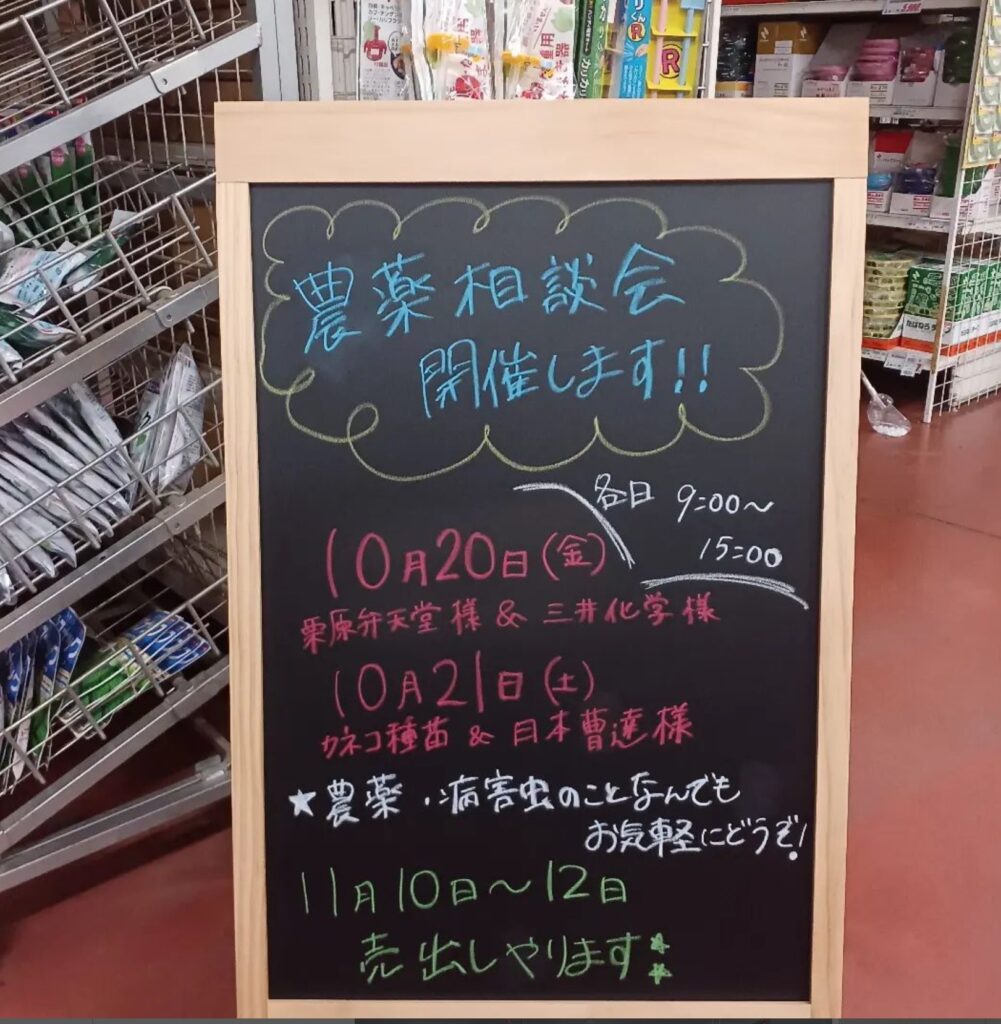 農薬相談会
開催します!!
各日 9:00〜
15:00
10月20日(金)
栗原弁天堂様 & 三井化学様
10月21日(土)
カネコ種苗 & 日本曹達様
★農薬・病害虫のことなんでも
お気軽にどうぞ!
11月10日〜12日
売出しやります!!